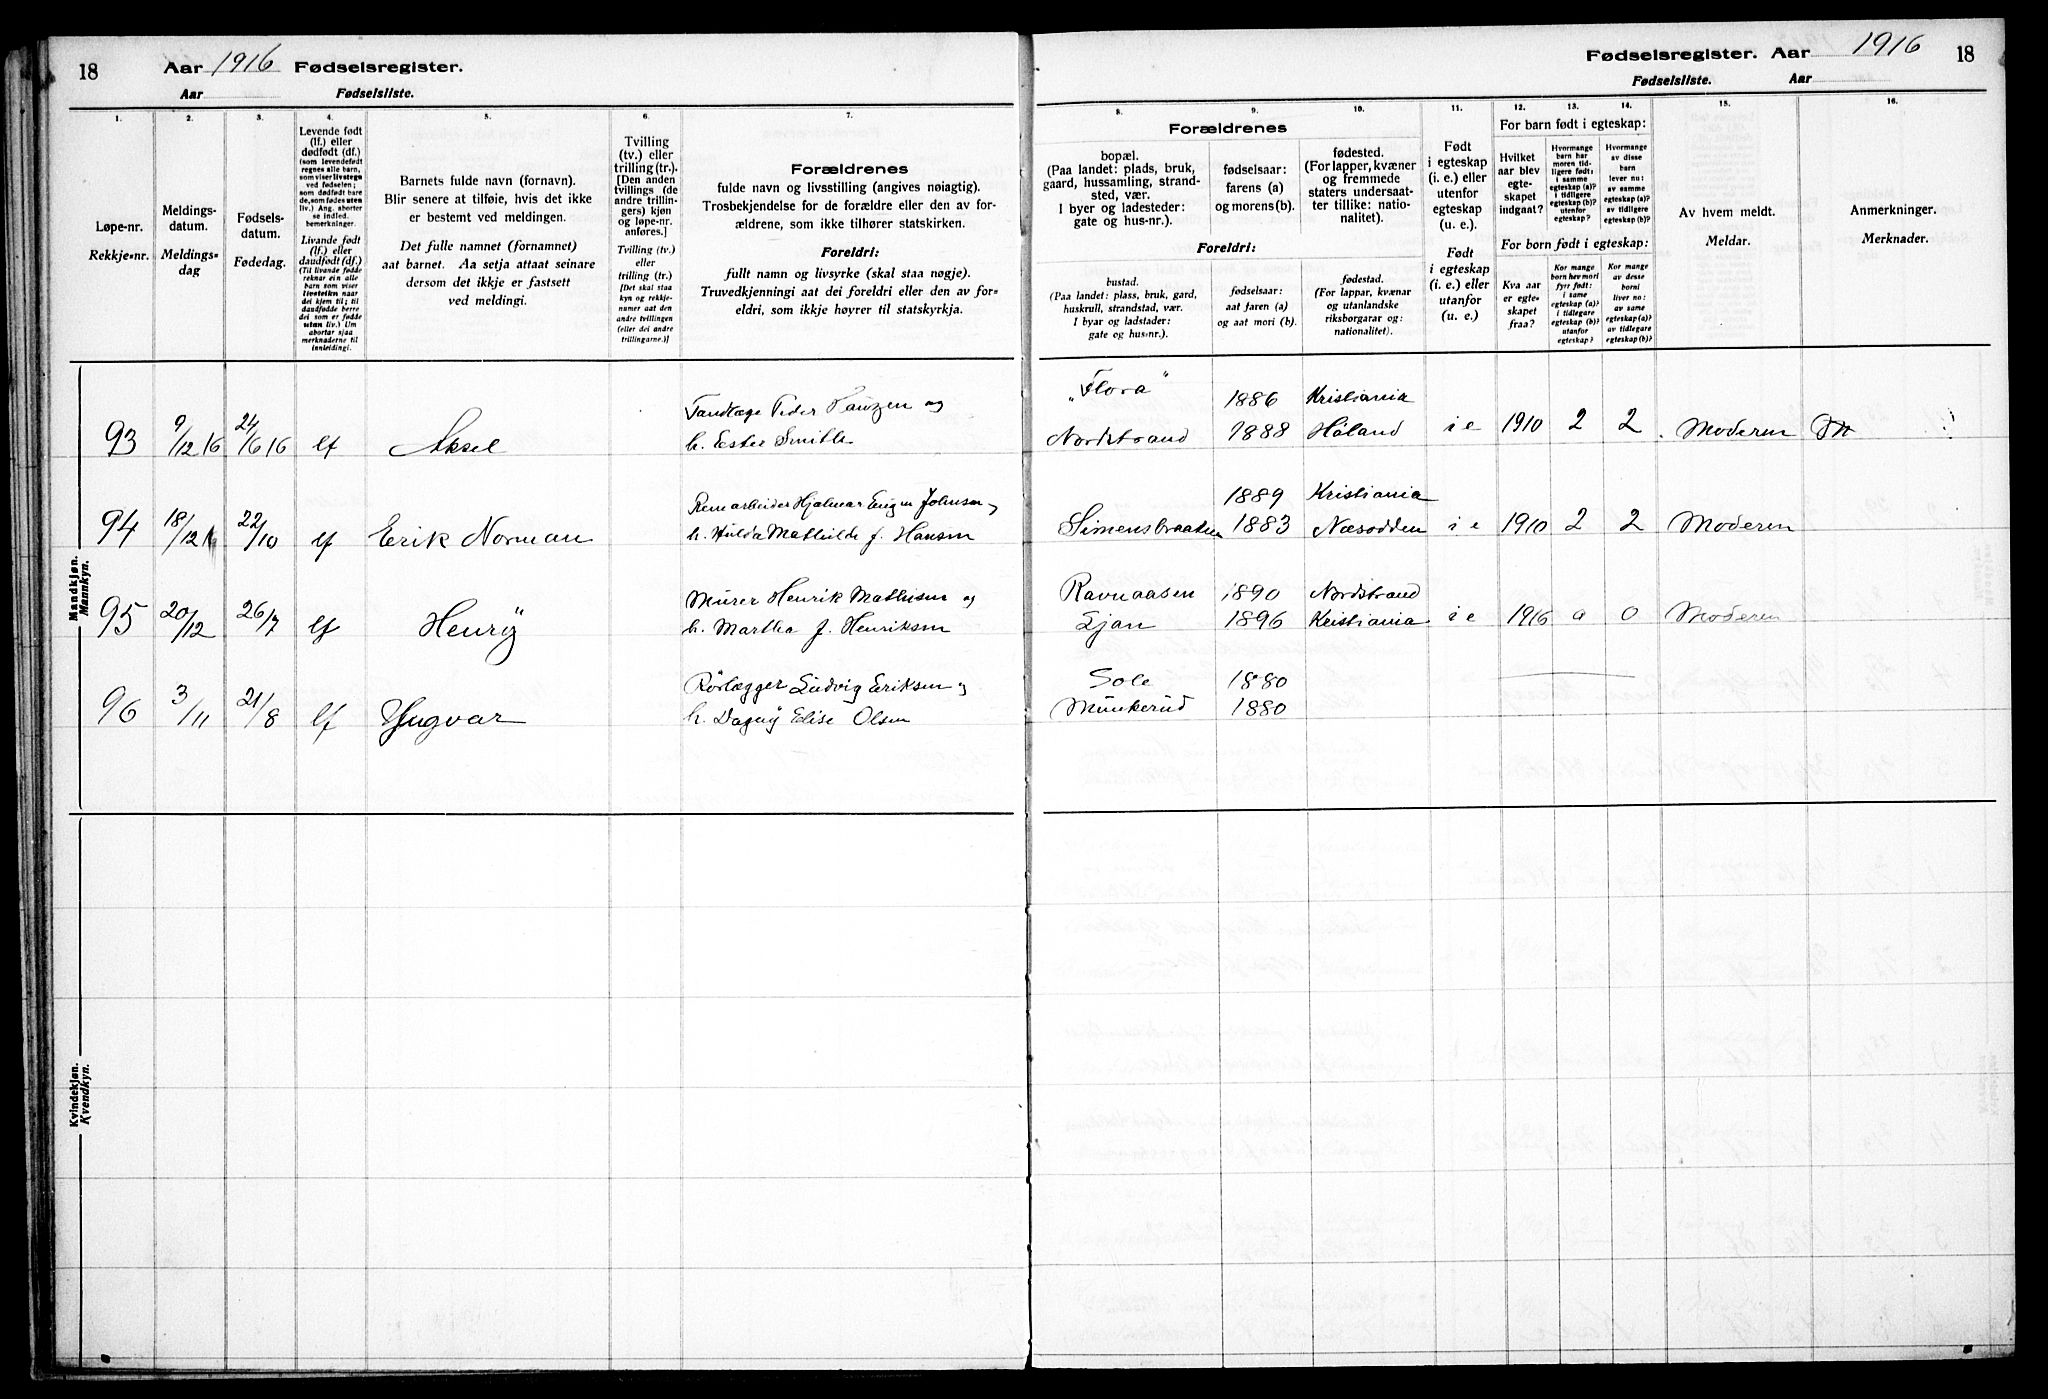 18
Aar 1916 Fødselsregister.
Aar Fødselsliste.
1.
2.
3.
4.
5.
6.
7.
Løpe-nr.
Rekkje-nr.
Meldings-
datum.
Meldings-
dag
Fødsels-
datum.
Fødedag.
Levende født
(lf.) eller
dødfødt (df.)
(som levendefødt
regnes alle barn,
som viser livstegn
ved fødselen;
som dødfødt bare
de, som fødes uten
liv.) Ang. aborter
se indled.
bemerkninger.
Livande født
(lf.) eller
daudfødt (df.)
(Til livande fødde
reknar ein alle
barn som viser
livsteikn naar
dei kjem til; til
daudfødde berre
dei som er fødde
utan liv.) Um
abortar sjaa
merknaderne til
innleidingi.
Barnets fulde navn (fornavn).
Blir senere at tilføie, hvis det ikke
er bestemt ved meldingen.
Det fulle namnet (fornamnet)
aat barnet. Aa setja attaat seinare
dersom det ikkje er fastsett
ved meldingi.
Tvilling
(tv.) eller
trilling (tr.).
[Den anden
tvillings (de
andre trillin-
gers) kjøn
og løpe-nr.
anføres.]
Tvilling (tv.)
eller
trilling (tr.)
[Det skal staa
kyn og rekkje-
numer aat den
andre tvillingen
(eller dei andre
trillingarne.)]
Forældrenes
fulde navn og livsstilling (angives nøiagtig).
Trosbekjendelse for de forældre eller den av for-
ældrene, som ikke tilhører statskirken.
Foreldri:
fullt namn og livsyrke (skal staa nøgje).
Truvedkjenningi aat dei foreldri eller den av for-
eldri, som ikkje høyrer til statskyrkja.
Mandkjøn.
Mannkyn.
93 9/12 16 24/6 16 lf Aksel
Tandlæge Peder Pauzen og
h. Ester Smith
94 18/12 22/10 lf Erik Norman
Hjalmar Eugen Johnsen
h. Hulda Mathilde f. Hansen
95 20/12 26/7 lf Henry
Murer Henrik Mathisen og
h. Martha f. Henriksen
96 3/11 21/8 lf Yngvar
Rørlægger Ludvig Eriksen og
h. Dagny Elise Olsen
Kvindekjøn.
Kvendkyn.
Fødselsregister. Aar 1916 18
Fødselsliste. Aar
8.
9.
10.
11.
12.
13.
14.
15.
16.
Forældrenes
bopæl.
(Paa landet: plads, bruk,
gaard, hussamling, strand-
sted, vær.
I byer og ladesteder:
gate og hus-nr.).
fødselsaar:
farens (a)
og morens (b).
fødested.
(For lapper, kvæner
og fremmede
staters undersaat-
ter tillike: natio-
nalitet).
Foreldri:
bustad.
(Paa landet: plass, bruk, gard,
huskrull, strandstad, vær.
I byar og ladstader:
gate og hus-nr.).
fødselsaar:
aat faren (a)
og aat mori (b).
fødestad.
(For lappar, kvænar
og utanlandske
riksborgarar og:
nationalitet).
Født
i egteskap
(i. e.) eller
utenfor
egteskap
(u. e.).
Født
i egteskap
(i. e.) eller
utanfor
egteskap
(u. e.).
For barn født i egteskap:
Hvilket
aar blev
egte-
skapet
indgaat?
Hvormange
barn har
moren tid-
ligere født:
i samme
egteskap (a)?
i tidligere
egteskap (b)?
utenfor
egteskap?
Hvormange
av disse
barn
lever nu:
av samme
egteskap (a)?
av tidligere
egteskap (b)?
For born født i egteskap:
Kva aar
er egte-
skapet
fraa?
Kor mange
born hev mori
fyrr født:
i same
egteskap (a)?
i tidlegare
egteskap (b)?
utanfor
egteskap?
Kor mange
av desse
borni
liver no:
av same
egteskap (a)?
av tidlegare
egteskap (b)?
Av hvem meldt.
Meldar.
Anmerkninger.
Merknader.
„Flora" 1886 Kristiania
Nordstrand 1888 Høland i e 1910 2 2 Moderen
1889 Kristiania
Simensbraaten 1883 Næsodden i e 1910 2 2 Moderen
Ravnaasen 1890 Nordstrand
Ljan 1896 Kristiania i e 1916 0 0 Moderen
Sole 1880
Munkerud 1880